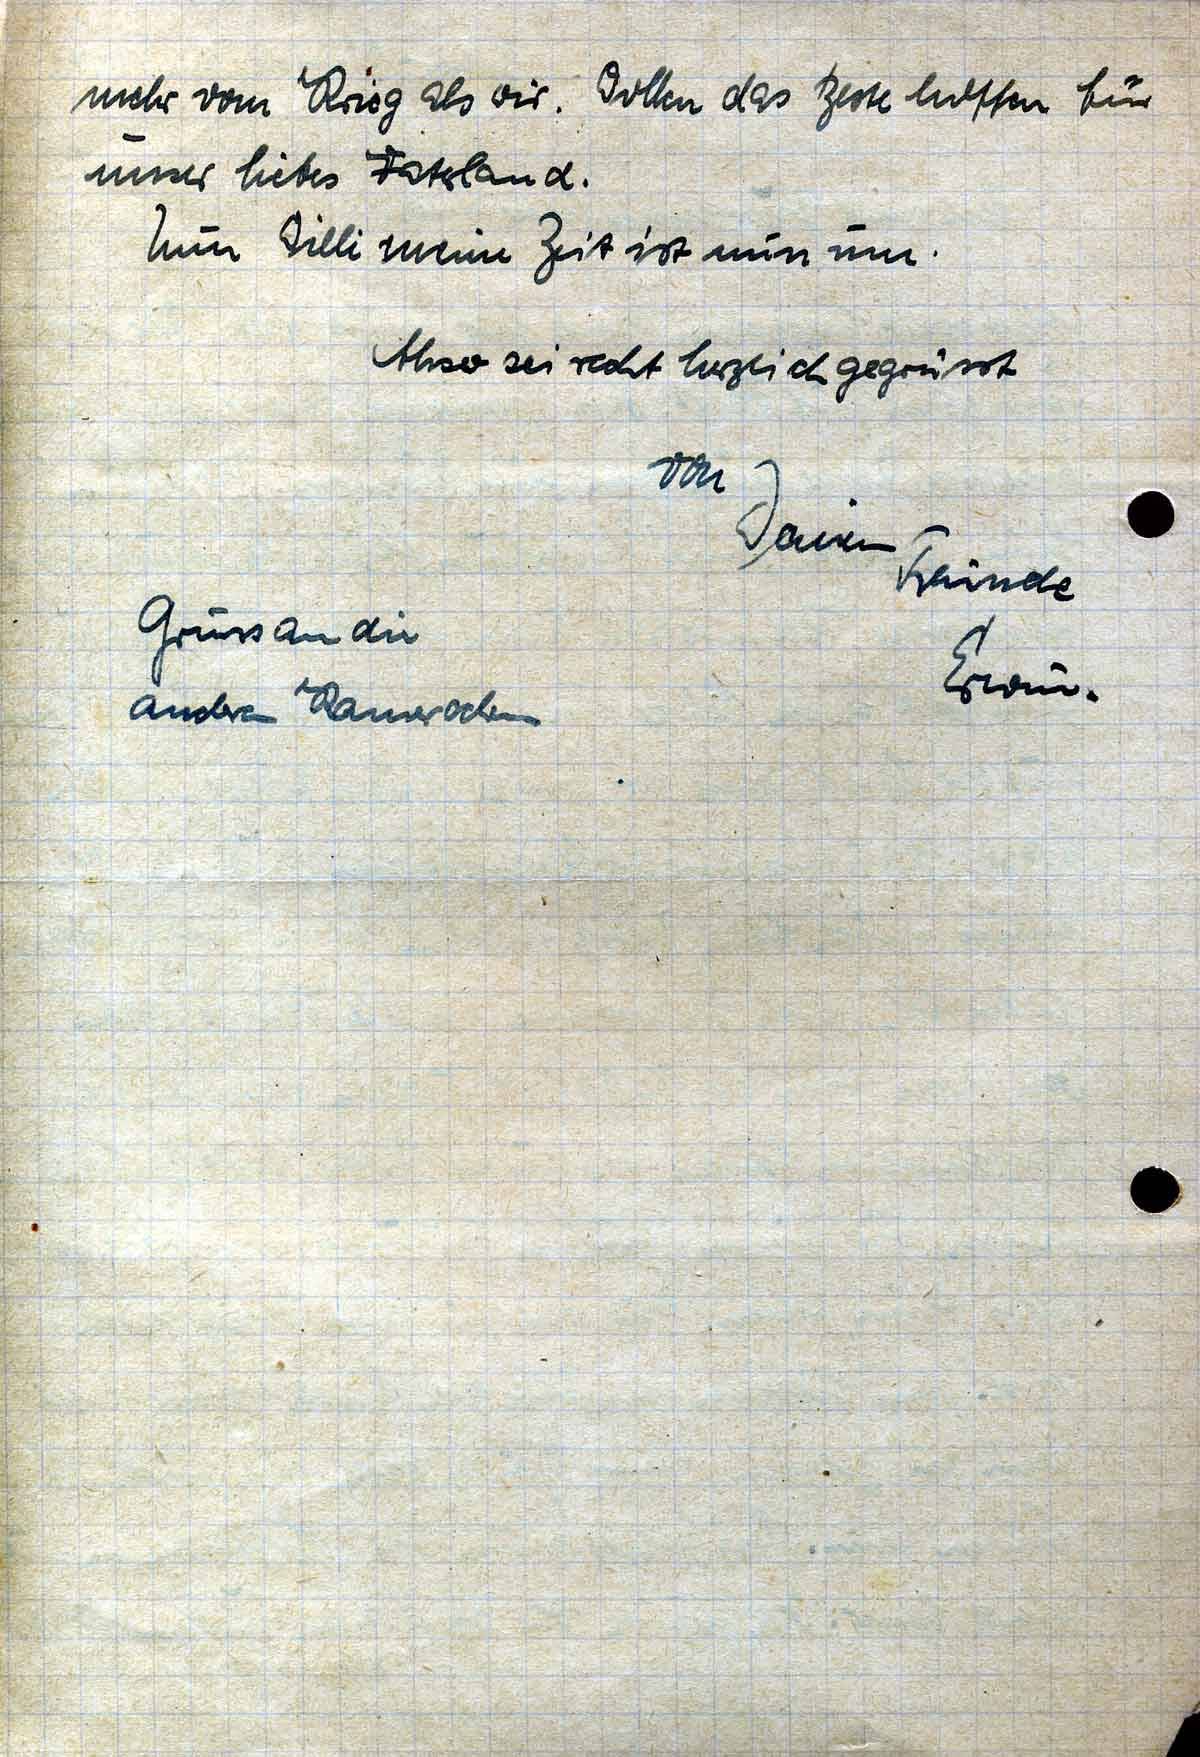 mehr vom Krieg als wir. Wollen das beste hoffen für
unser liebes Vaterland.
Nun Willi meine Zeit ist nun um.
Also sei recht herzlich gegrüsst
von
Deinem
Freunde
Erwin.
Gruss an die
andern Kameraden